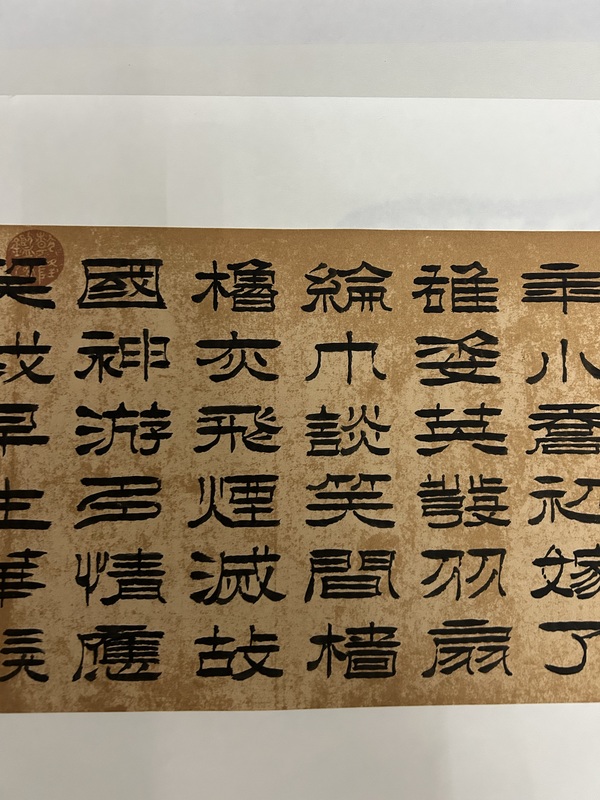 年小喬初嫁了
雄姿英發羽扇
綸巾談笑間檣
櫓灰飛煙滅故
國神游多情應
笑我早生華